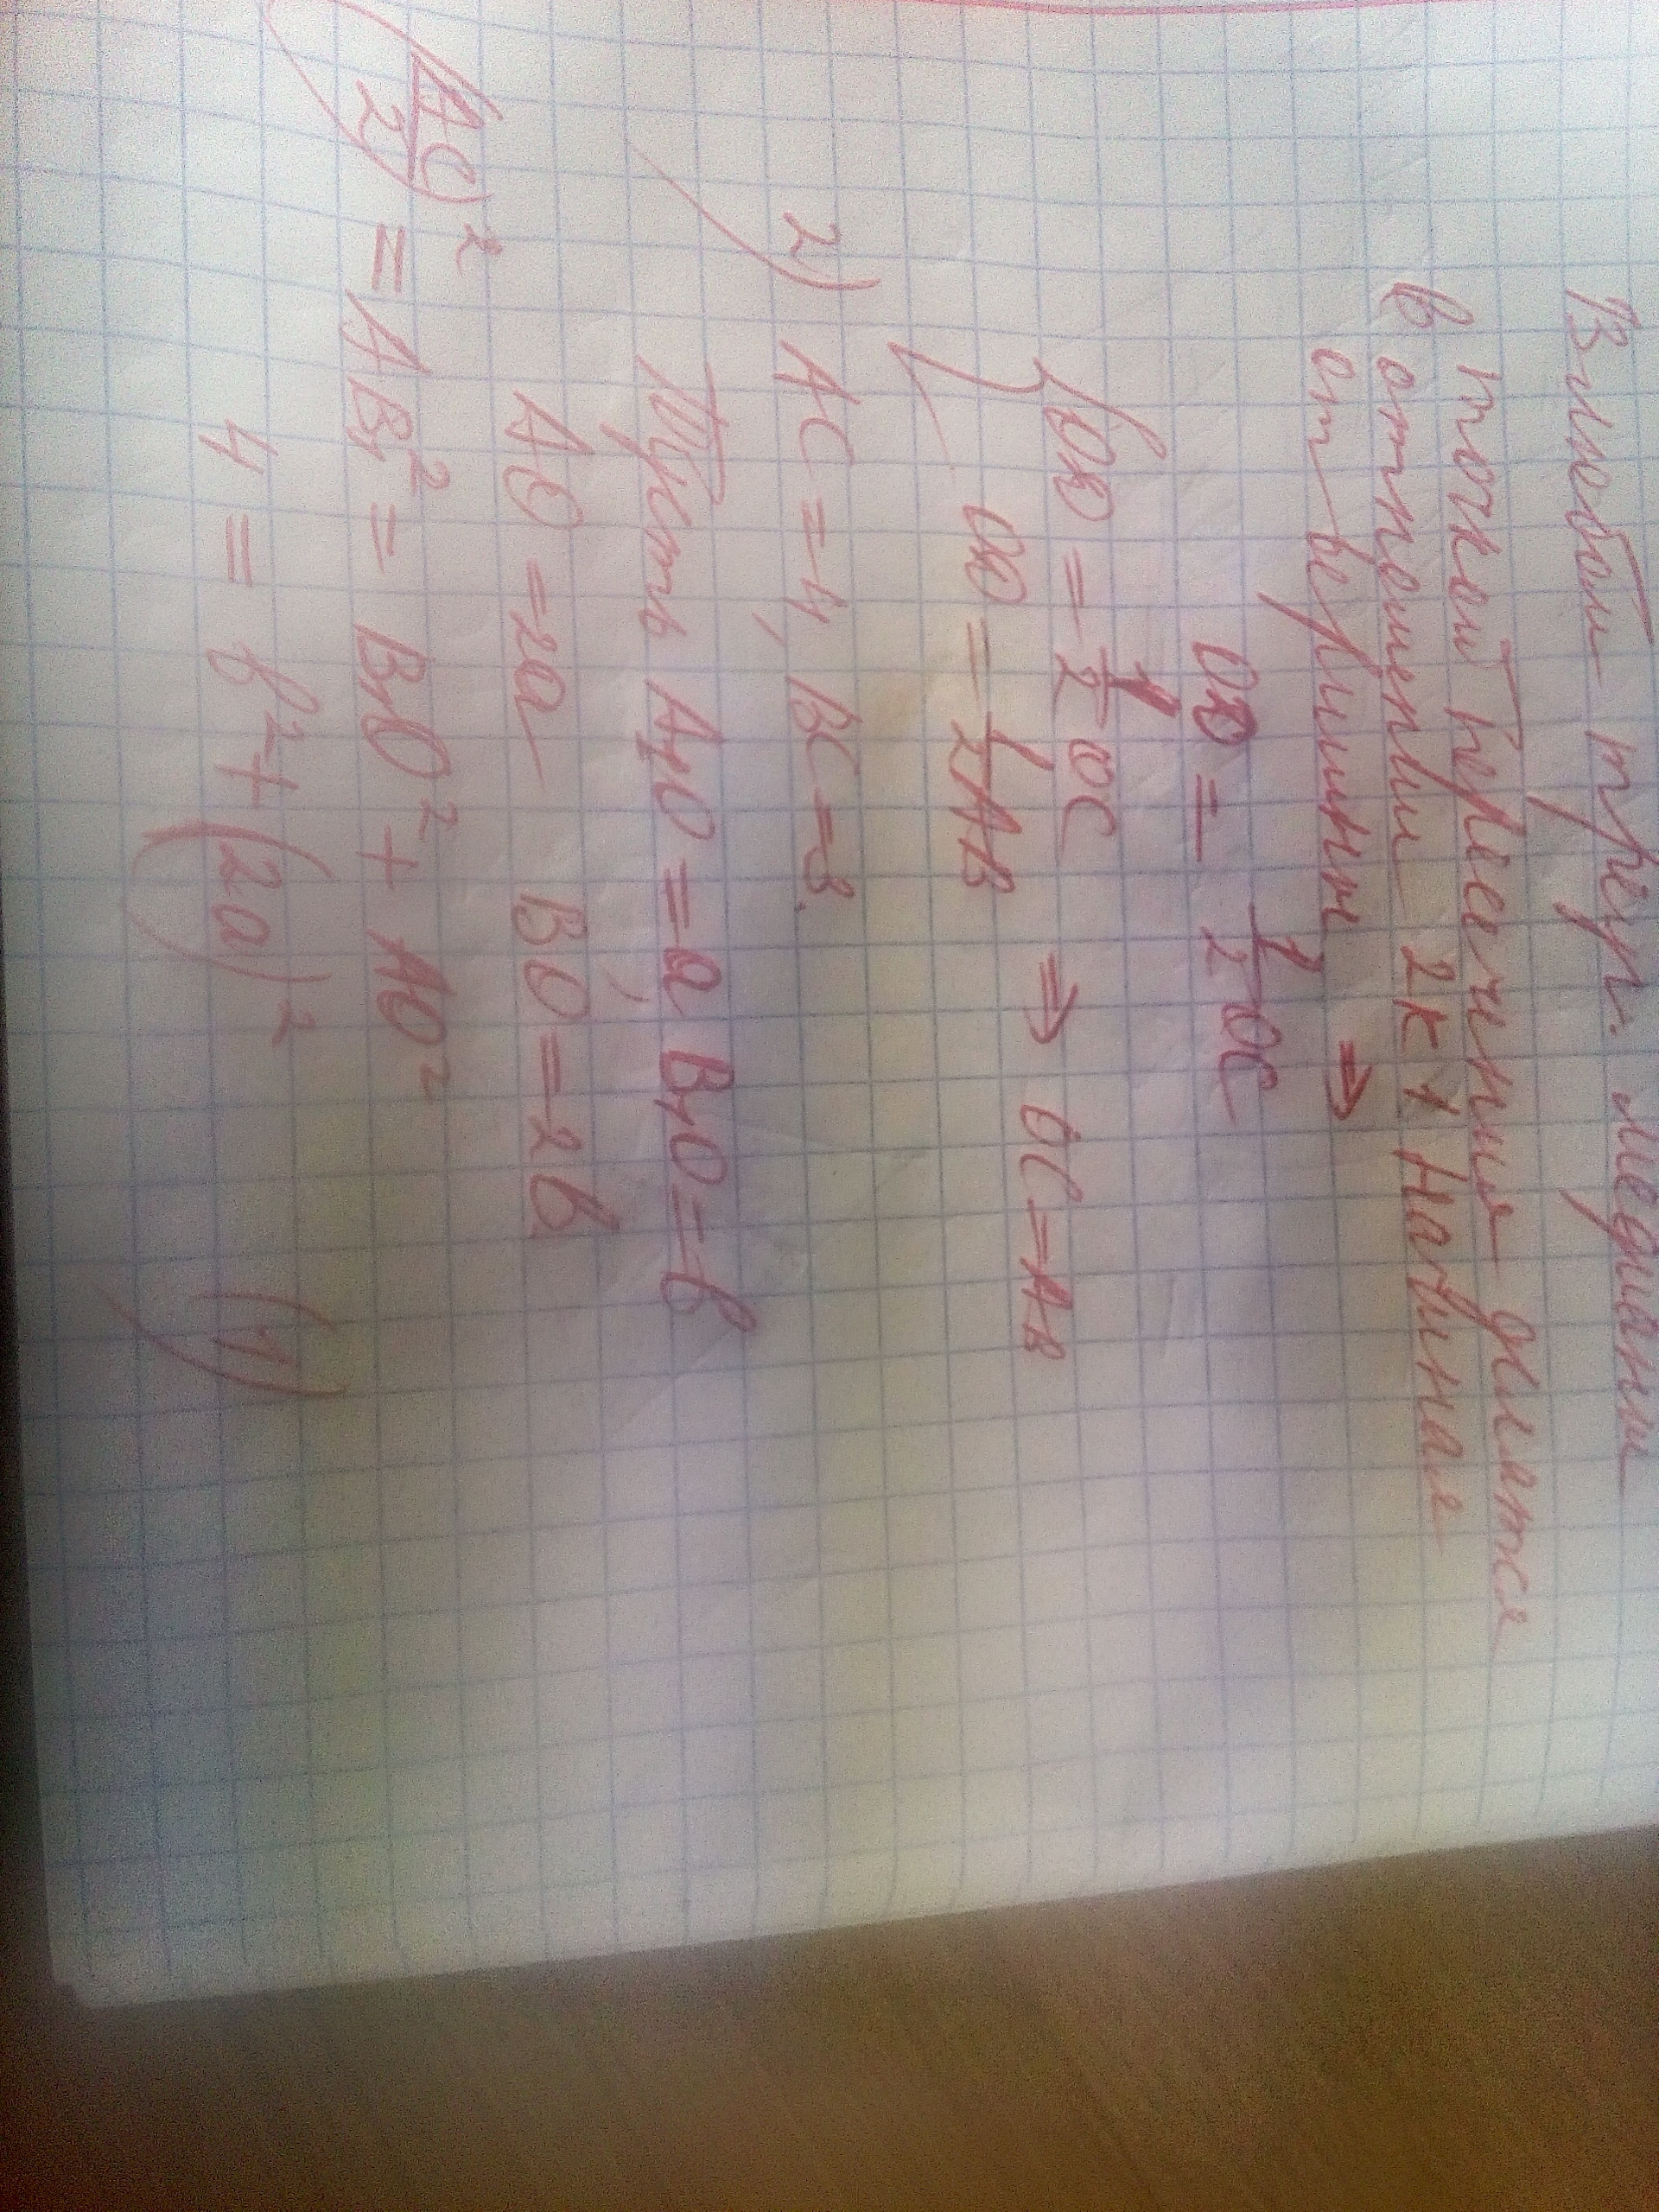 В любом треуг. медианы
точкой пересечения делятся
в отношении 2к1 начиная
от вершины ⇒
OO = 1/2 OC
{OO = 1/2 OC
OO = 1/2 AB ⇒ OC = AB
2) AC = 4, BC = 3.
Пусть A₁O = a, B₁O = b
AO = 2a BO = 2b
(AC/2)² = AB₁² = B₁O² + AO²
4 = b² + (2a)² (1)